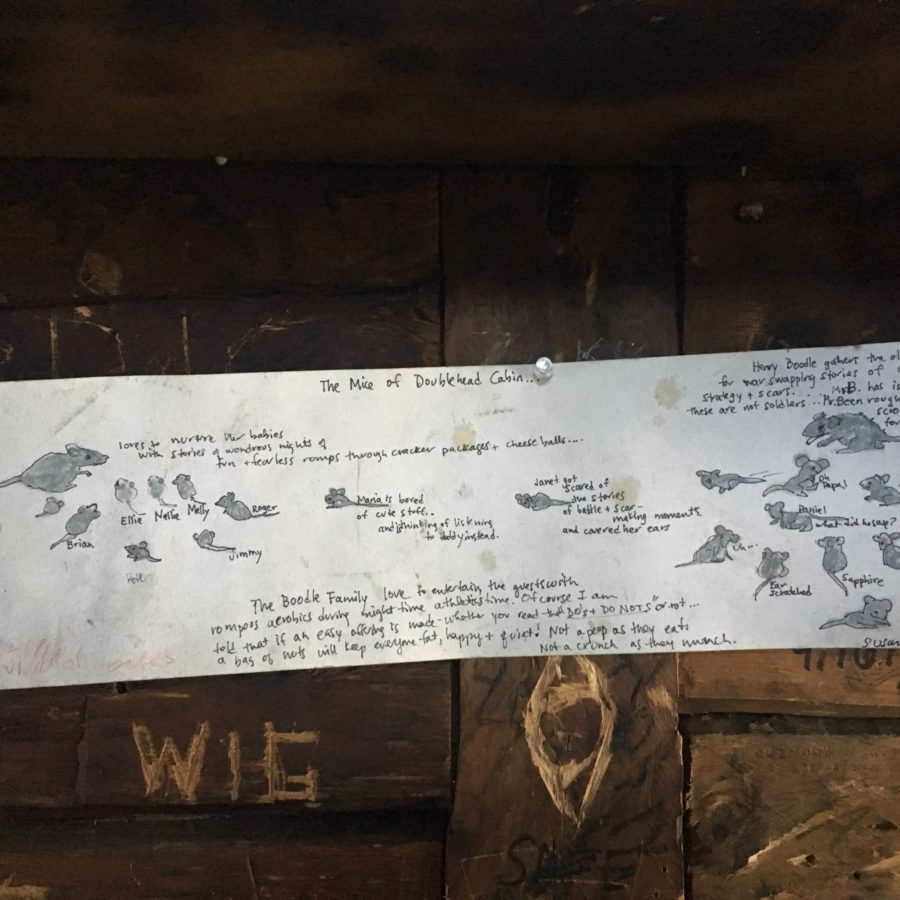 The Mice of Doublehead Cabin...
loves to nurture her babies
with stories of wondrous nights of
fun + fearless romps through cracker packages + cheese balls...
Brian
Ellie
Nellie
Melly
Roger
Jimmy
Maria is bored
of cute stuff..
and is thinking of listening
to daddy instead.
Janet got
scared of
the stories
of battle + scar-
making moments,
and covered her ears
Henry Boodle gathers the
for war swapping stories of
strategy + scars... Mr B. has
these are not soldiers... Mr. Been rough
Oh
Papa!
Daniel
what did he say?
uh...
Ear
scratched
Sapphire
Susan
The Boodle Family love to entertain the guests with
rompos aerobics during night-time athletes time. Of course I am
told that if an easy offering is made - whether you read the "DO's + DO NOTS" or not...
a bag of nuts will keep everyone fat, happy + quiet! Not a peep as they eat.
Not a crunch as they munch.
WIG